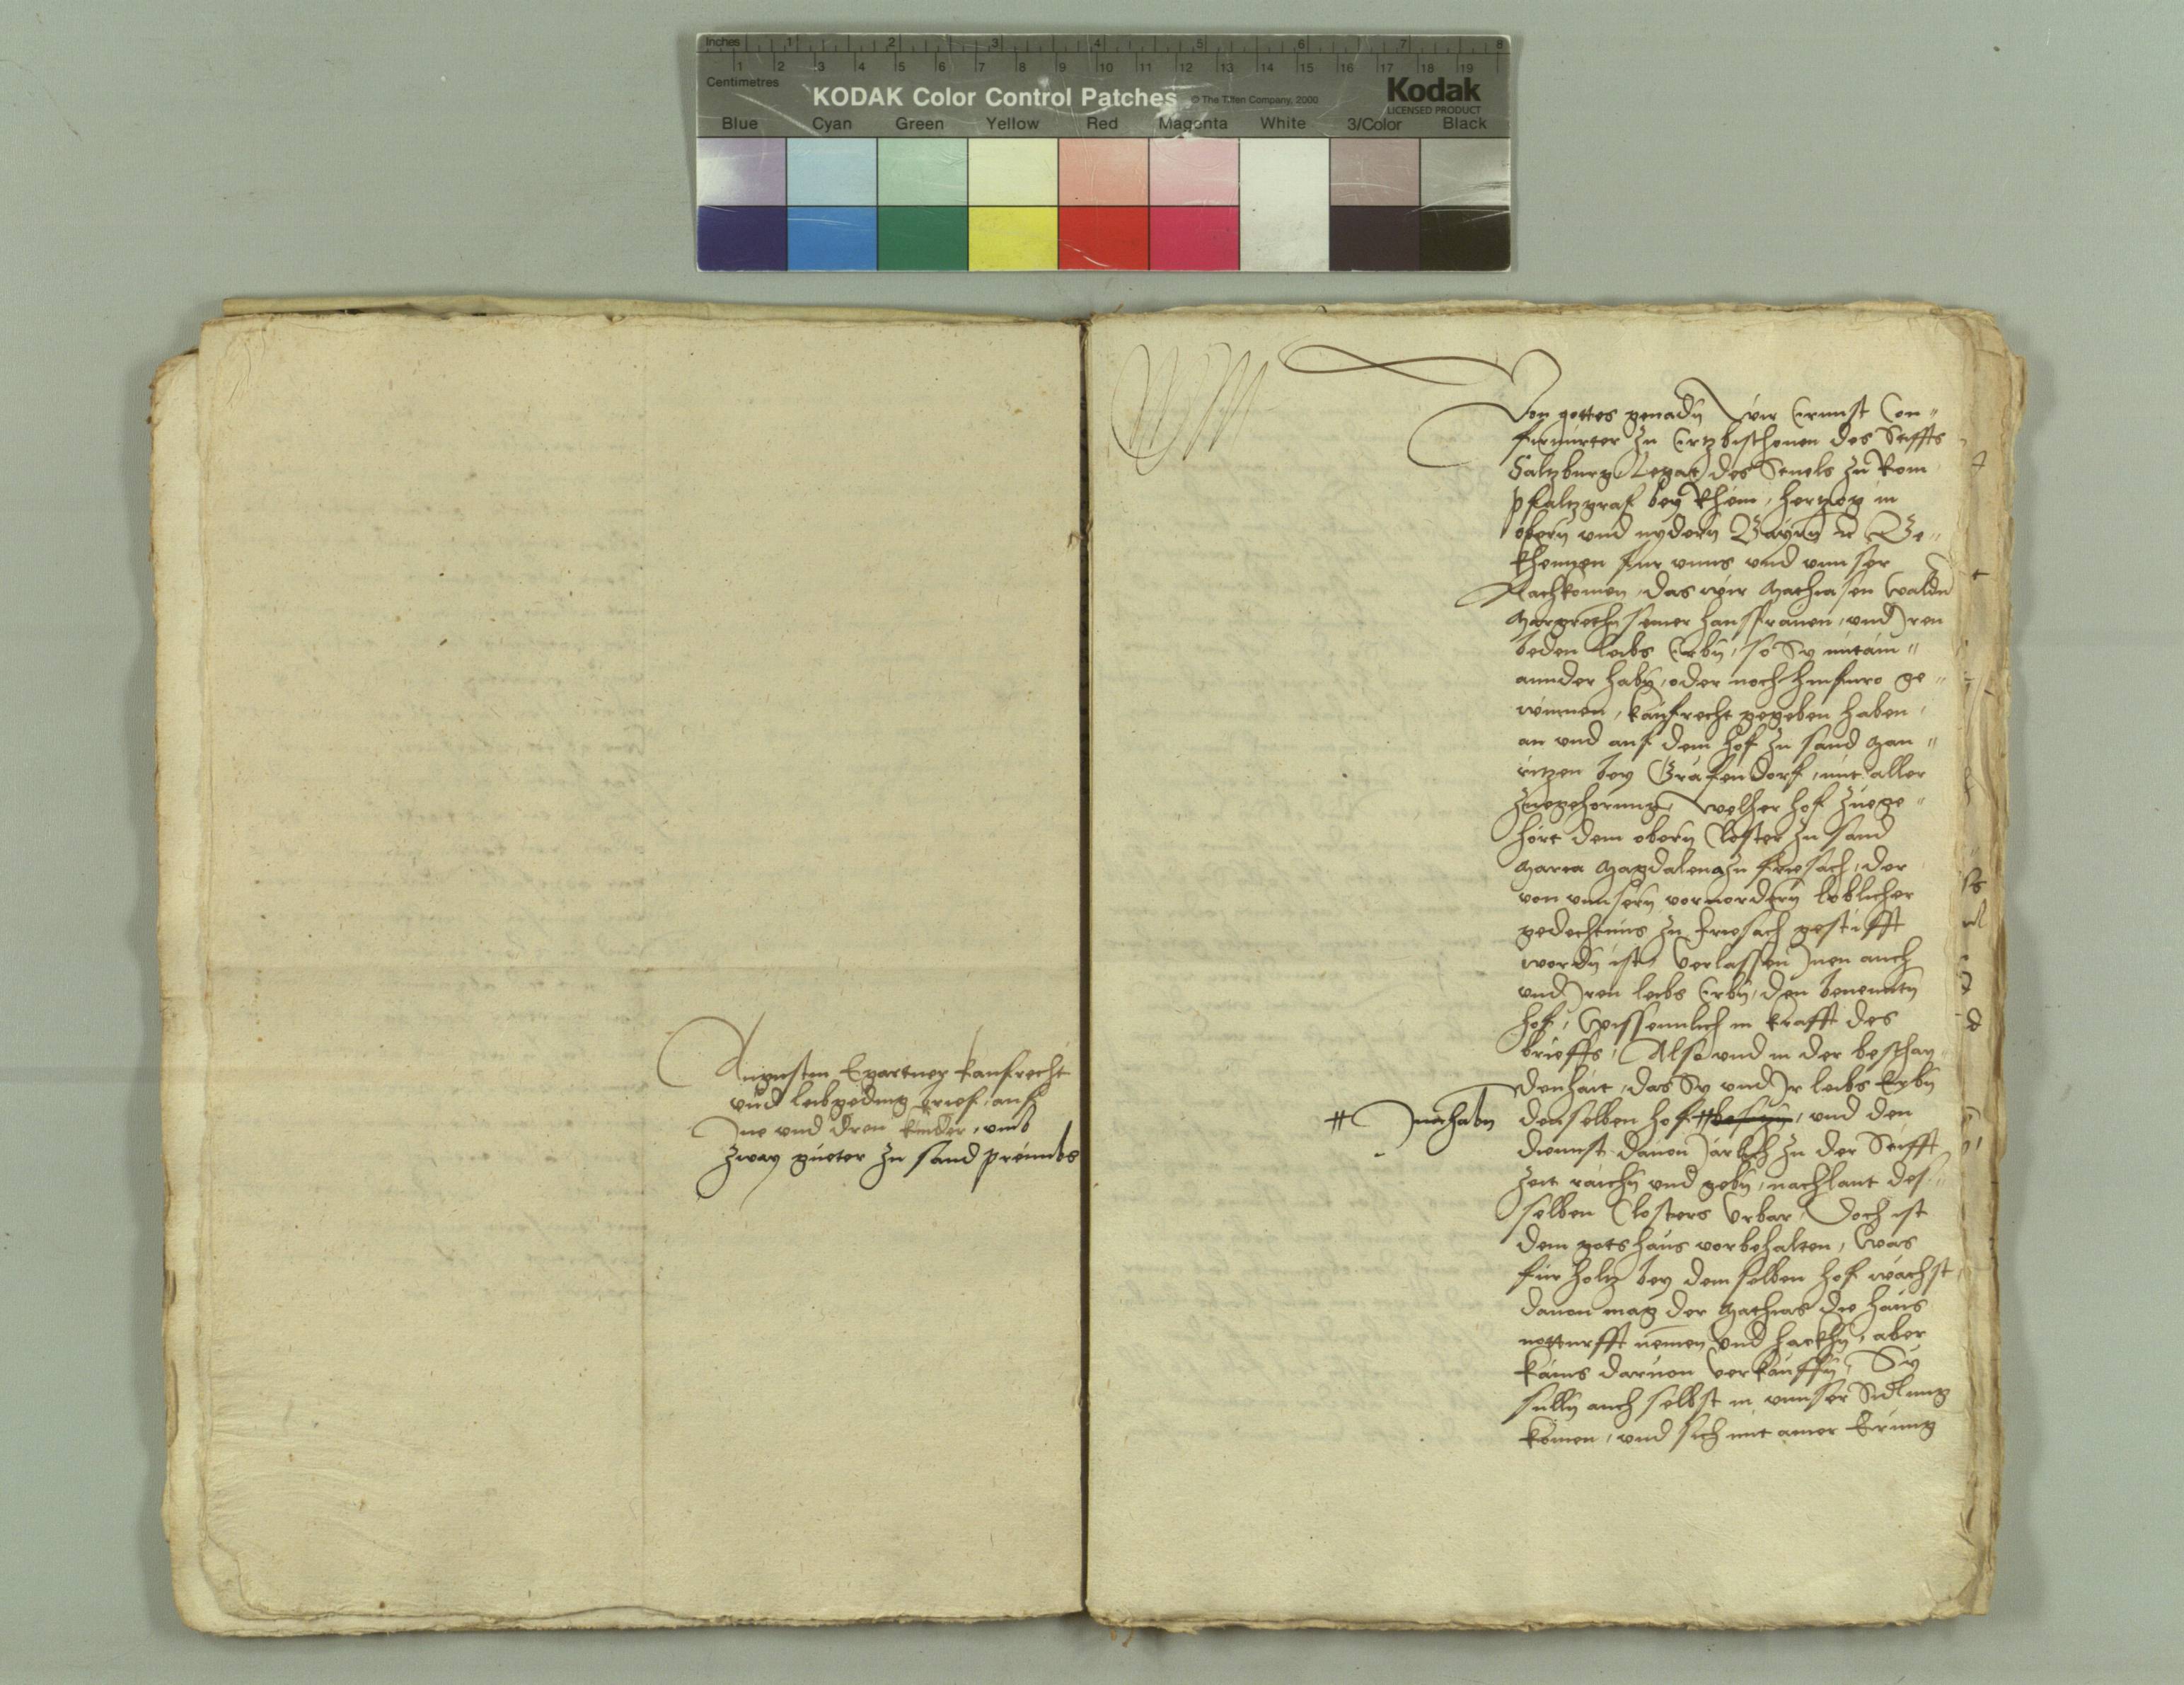 Inches 1 2 3 4 5 6 7 8
1 2 3 4 5 6 7 8 9 10 11 12 13 14 15 16 17 18 19
Centimetres
KODAK Color Control Patches © The Tiffen Company, 2000 Kodak
LICENSED PRODUCT
Blue Cyan Green Yellow Red Magenta White 3/Color Black
Augustin Egartner kaufrecht
vnd leibgeding brief, auf
Ine vnd dreu kinder, vmb
zway güeter zu sand primbs
Von gottes genadn Wir Ernnst Con„
firmirter zu Ertzbischouen des Stiffts
Saltzburg Legat des Stuels zu Rom
pfaltzgraf bey Rhein, hertzog in
obern vnd nydern Bayrn ꝛc Be„
khennen fur vnns vnd vnnser
Nachkomen, das wir Mathiasen
Margrethn seiner hausfrauen, vnd Iren
beden leibs Erbn, so Sy mitain„
annder habn, oder noch hinfuro ge„
winnen, kaufrecht gegeben haben,
an vnd auf dem hof zu sand Mau„
ritzen bey Grafendorf, mit aller
zuegehorung, welher hof zuege„
hört dem obern Closter zu sand
Maria Magdalena zu Friesach, der
von vnnsern voruordern loblicher
gedechtnus zu Friesach gestifft
wordn ist, Verlassen Inen auch
vnd Iren leibs Erbn, den benenntn
hof, Wissennlich in krafft des
brieffs, Also vnd in der beschay„
denhait, das Sy vnd Ir leibs Erbn
# Innhabn denselben hof # besitzn, vnd den
diennst dauon Järlich zu der Stifft
zeit raichn vnd gebn, nachlaut des„
selben Closters Vrbar, Doch ist
dem gotshaus vorbehalten, Was
für holtz bey demselben hof wächst,
dauon mag der Mathias die haus
notturfft nemen vnd hackhn, aber
kains daruon verkauffn, Sy
sulln auch selbst in vnnser Sidlung
komen, vnd sich mit ainer Erung